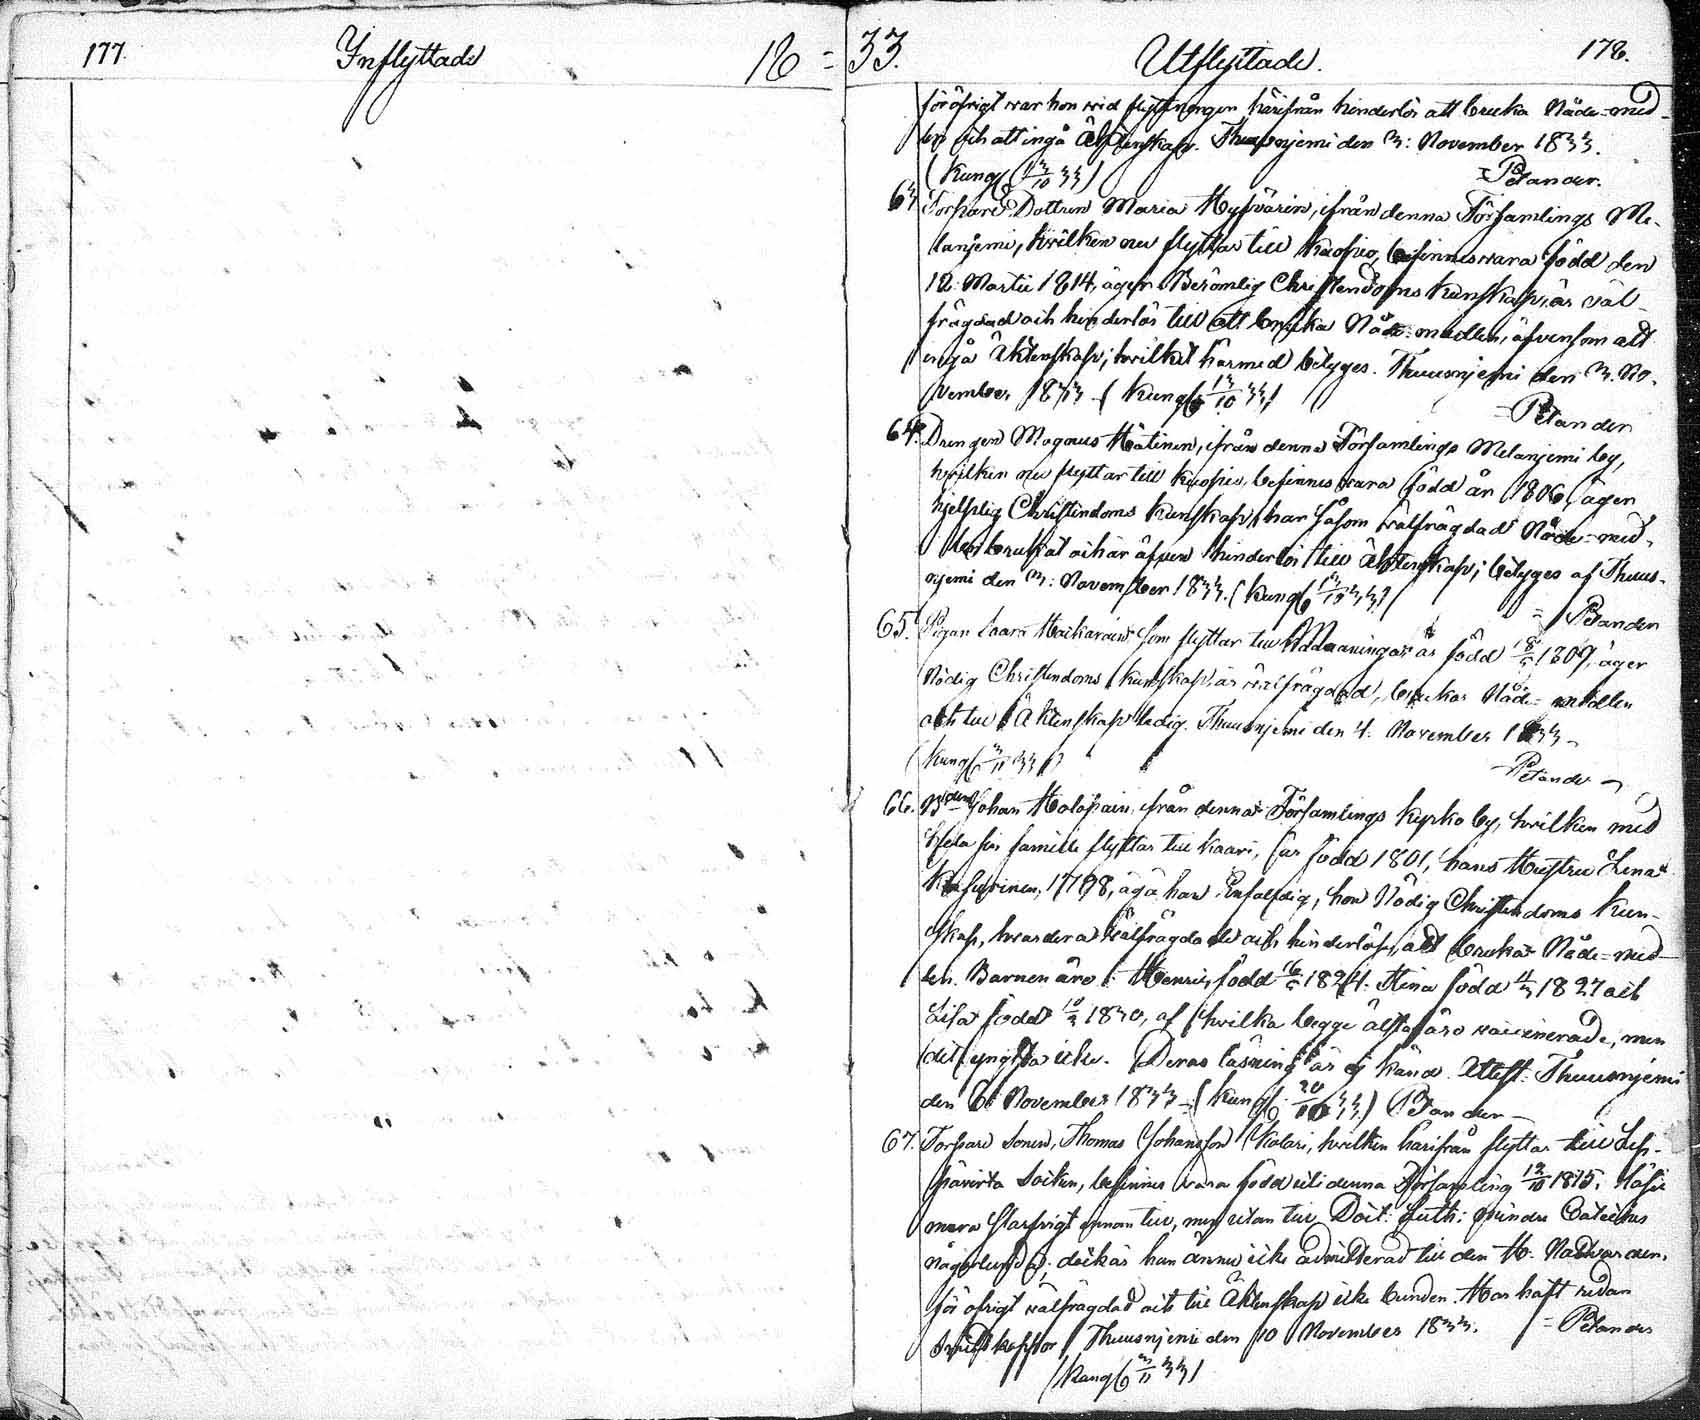 177.
Ynflyttade
18 =
33.
Utflyttade.
178.
föröfrigt war hon wid flyttningen härifrån hinderlös att bruka Nåde-med-
len och att ingå Äktenskap. Thuusnjemi den 3: November 1833.
(Kung 13/10 33)
= Petander.
63 Torpare Dottren Maria Hyfvärin, ifrån denna Församlings Me-
lanjemi, hvilken nu flyttar till Kuopio, befinnes vara född den
12 Martii 1814, äger Berömlig Christendoms kunskap, är väl-
frägdad och hinderlös till att bruka Nåde-medlen, äfvensom att
ingå Äktenskap; hvilket härmed betyges. Thuusnjemi den 3. No-
vember 1833 - (Kung 13/10 33)
= Petander
64. Drengen Magnus Hätinen, ifrån denna Församlings Melanjemi by,
hvilken nu flyttar till Kuopio, befinnes vara född år 1806, äger
hjelplig Christendoms kunskap, har såsom välfrägdad Nåde-med-
len brukat och är äfven hinderlös till Äktenskap; betyges af Thuus-
njemi den 3: November 1833. (Kung 13/10 33)
= Petander
65. Pigan som flyttar till är född 1809, äger
Nödig Christendoms kunskap, är välfrägdad, brukar Nåde-medlen
och till Äktenskap ledig. Thuusnjemi den 4. November 1833 -
(Kung 3/11 33)
- Petander -
66. Bonden Johan Holopain, ifrån denna Församlings kyrko by, hvilken med
hela sin famille flyttar till Kaavi, är född 1801, hans Hustru Lena
1798, äga han Enfaldig, hon Nödig Christendoms kun-
skap, hvardera välfrägdade och hinderlöse, att bruka Nåde-med-
len. Barnen äro: Henric, född 1824. Stina född 1827 och
Lisa född 1830, af hvilka begge älsta äro vaccinerade, men
det yngsta icke. Deras läsning är ej känd. Attest: Thuusnjemi
den 6: November 1833 - (Kung 20/10 33) Petander -
67. Torpare Sonen, Thomas Johansson Kolari, hvilken härifrån flyttar till Lep-
pävirta Soken, befinnes vara född uti denna Församling 12/10 1815, läser
innan till, men utan till Doct: Luth: mindre Cateches
någorlunda; dock är han ännu icke admitterad till den H. Nattvarden,
för öfrigt välfrägdad och till Äktenskap icke bunden. Har haft redan
Thuusnjemi den 10 November 1833. = Petander
(Kung 3/11 33)